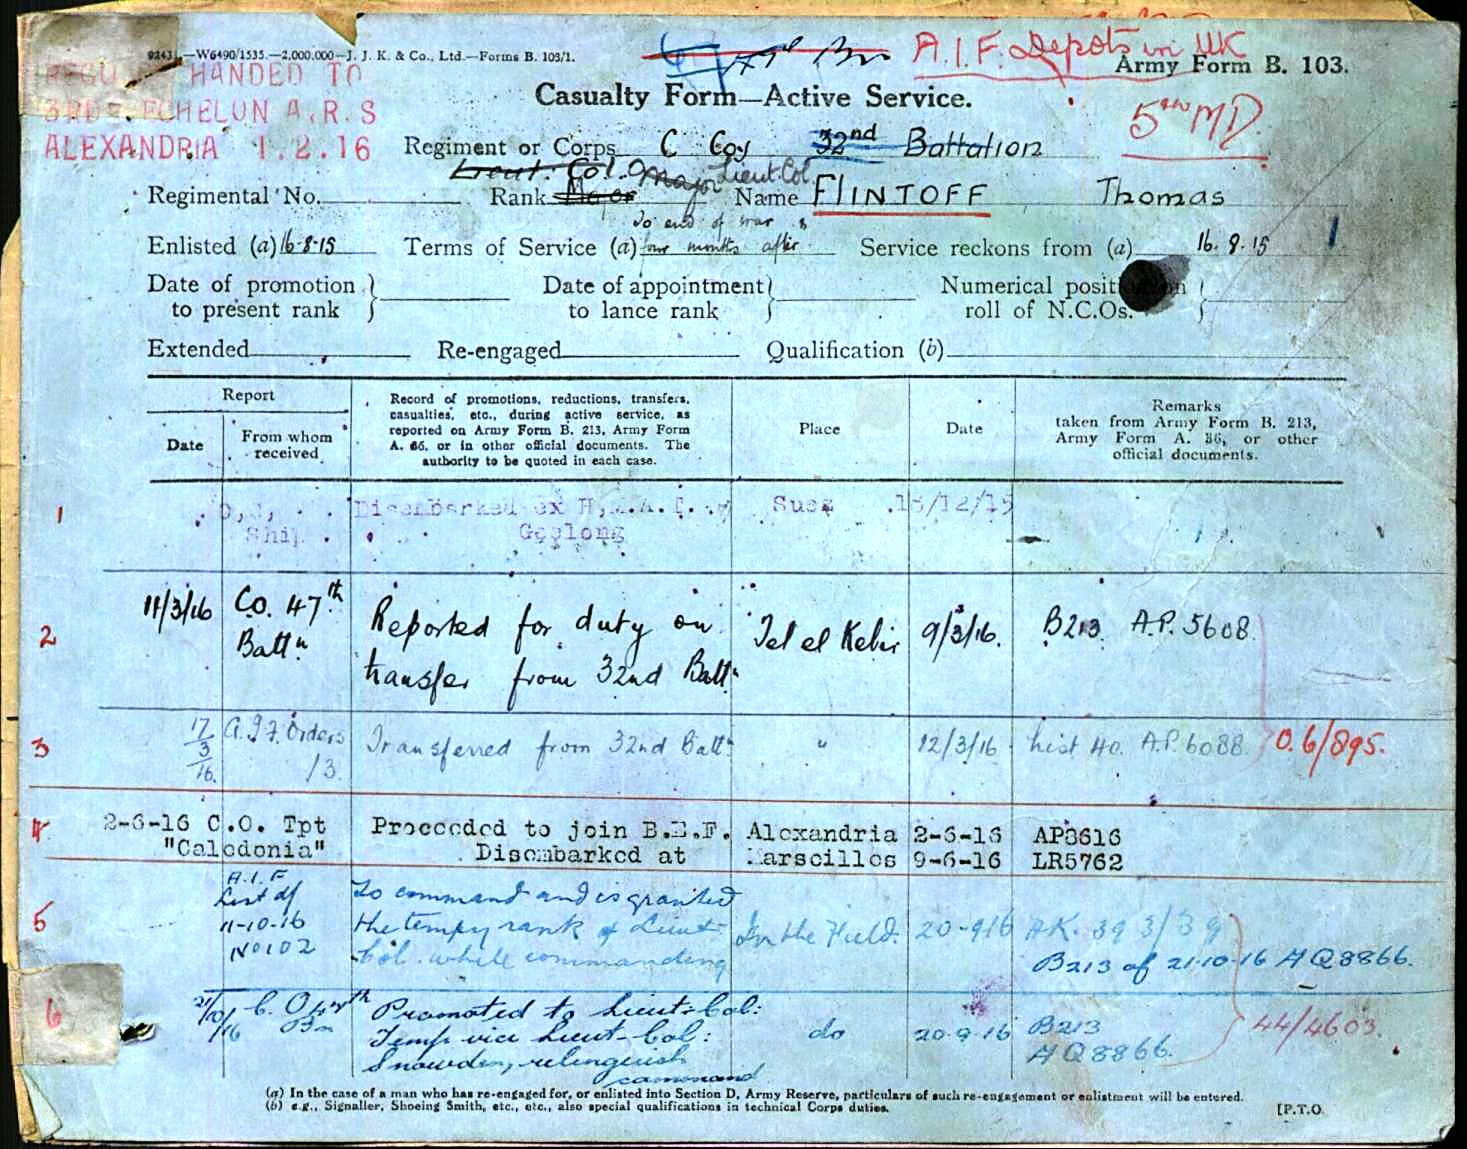 9243.—W6490/1535.—2,000,000—J. J. K. & Co., Ltd.—Forms B. 103/1.
A.I.F. Depots in UK
Army Form B. 103.
HANDED TO
3RD ECHELON A.R.S
ALEXANDRIA 1.2.16
Casualty Form—Active Service.
5th MD
Regiment or Corps C Coy 32nd Battalion
Lieut. Col. Major Lieut. Col
Regimental No. Rank Major Name FLINTOFF Thomas
To end of war &
Enlisted (a) 16-8-15 Terms of Service (a) four months after Service reckons from (a) 16.8.15
Date of promotion to present rank
Date of appointment to lance rank
Numerical position on roll of N.C.Os.
Extended Re-engaged Qualification (b)
Report
Date
From whom received
Record of promotions, reductions, transfers,
casualties, etc., during active service, as
reported on Army Form B. 213, Army Form
A. 36, or in other official documents. The
authority to be quoted in each case.
Place
Date
Remarks
taken from Army Form B. 213,
Army Form A. 36, or other
official documents.
1 Disembarked ex H.M.A.T. Suez 15/12/15
Ship Geelong
2 11/3/16 Co. 47th Reported for duty on Tel el Kebir 9/3/16. B213 A.P. 5608
Battn transfer from 32nd Battn
3 17/3/16. A.I.F. Orders Transferred from 32nd Battn " 12/3/16 List 40. A.P. 6088. O.6/895.
13.
4 2-6-16 C.O. Tpt Proceeded to join B.E.F. Alexandria 2-6-16 AP8616
"Caledonia" Disembarked at Marseilles 9-6-16 LR5762
5 A.I.F To command and is granted
List of
11-10-16 the tempy rank of Lieut- In the Field. 20-9-16 AK. 393/39
No 102 Col. while commanding B213 of 21-10-16 AQ8866.
6 21/10/16 C. O. 47th Bn Promoted to Lieut-Col: do 20-9-16 B213 44/4603.
Temp vice Lieut-Col: AQ8866.
Snowden, relinquish
command
(a) In the case of a man who has re-engaged for, or enlisted into Section D, Army Reserve, particulars of such re-engagement or enlistment will be entered.
(b) e.g., Signaller, Shoeing Smith, etc., etc., also special qualifications in technical Corps duties.
[P.T.O.